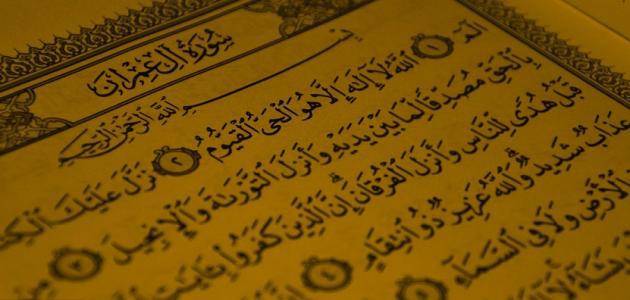 سُورَةُ آلِ عِمْرَانَ
بِسْمِ اللَّهِ الرَّحْمَٰنِ الرَّحِيمِ
الٓمٓ ١ اللَّهُ لَا إِلَٰهَ إِلَّا هُوَ الْحَيُّ الْقَيُّومُ ٢ نَزَّلَ عَلَيْكَ
بِالْحَقِّ مُصَدِّقًا لِمَا بَيْنَ يَدَيْهِ وَأَنزَلَ التَّوْرَىٰةَ وَالْإِنجِيلَ ٣
قَبْلُ هُدًى لِلنَّاسِ وَأَنزَلَ الْفُرْقَانَ إِنَّ الَّذِينَ كَفَرُوا
عَذَابٌ شَدِيدٌ وَاللَّهُ عَزِيزٌ ذُو انتِقَامٍ ٤
الْأَرْضِ وَلَا فِي السَّمَاءِ ٥